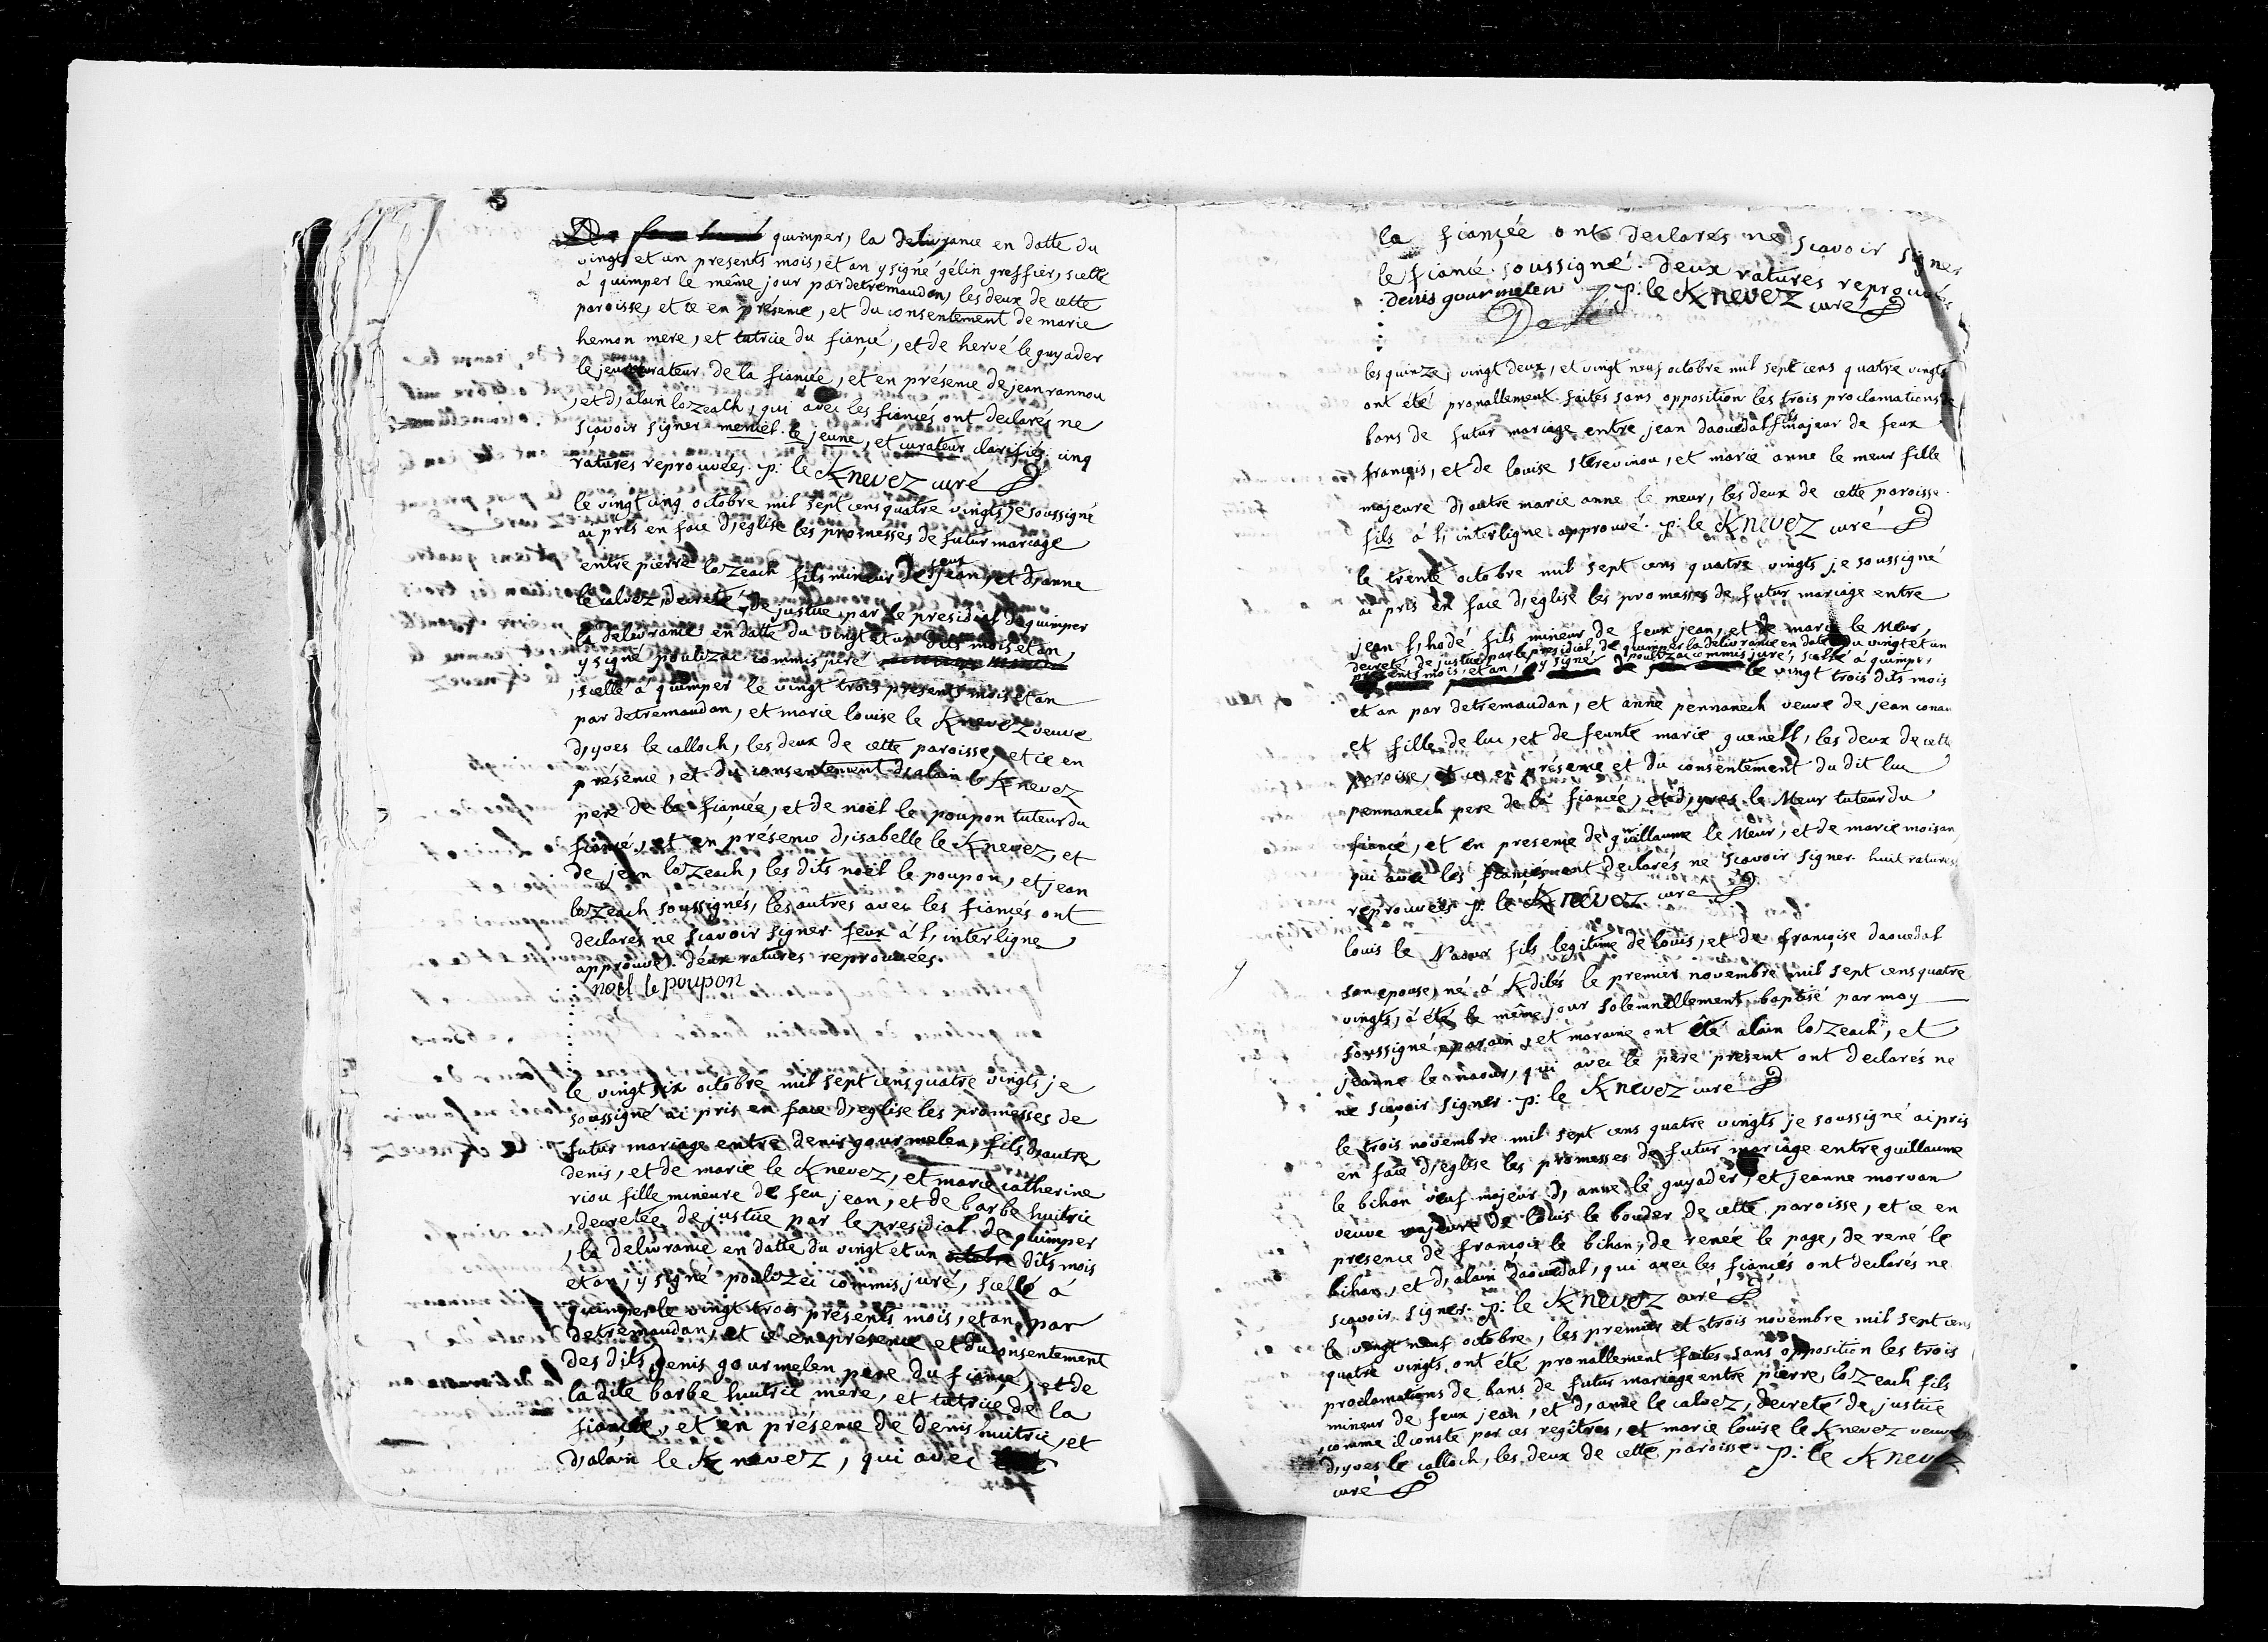 quimper, la delivrance en datte du
vingt et un presents mois, et an y signé gélin greffier, scellé
à quimper le même jour par detremaudan, les deux de cette
paroisse, et ce en présence, et du consentement de marie
hemon mere, et tutrice du fiançé, et de hervé le guyader
le jeune curateur de la fiancée, et en présence de jean rannou
, et d, alain lozeach, qui avec les fiancés ont declarés ne
scavoir signer. le jeune, et curateur clarifiés. cinq
ratures reprouvées. p: le Knevez curé
le vingt cinq octobre mil sept cens quatre vingts je soussigné
ai pris en face d, eglise les promesses de futur mariage
entre pierre lozeach fils mineur de feux jean, et d, anne
le calvez, decreté de justice par le presidial de quimper
la delivrance en datte du vingt et un dits mois et an,
y signé poulizac commis juré
, scellé à quimper le vingt trois présents mois et an
par detremaudan, et marie louise le Knevez veuve
d, yves le calloch, les deux de cette paroisse, et ce en
présence, et du consentement d, alain le Knevez
pere de la fiancée, et de noël le poupon tuteur du
fiancé, et en présence d, isabelle le Knevez, et
de jean lozeach, les dits noël le poupon, et jean
lozeach soussignés, les autres avec les fiancés ont
declarés ne scavoir signer. feux à l, interligne
approuvé. deux ratures reprouvées.
noel le poupon
le vingt six octobre mil sept cens quatre vingts je
soussigné ai pris en face d, eglise les promesses de
futur mariage entre denis gourmelen, fils d, autre
denis, et de marie le Knevez, et marie catherine
riou fille mineure de feu jean, et de barbe huitric
, decretée de justice par le presidial de quimper
, la delivrance en datte du vingt et un octobre dits mois
et an, y signé poulizei commis juré, scellé à
quimper le vingt trois présents mois, et an par
detremaudan, et ce en présence et du consentement
des dits denis gourmelen pere du fiancé, et de
la dite barbe huitric mere, et tutrice de la
fiancée, et en présence de denis huitric, et
d, alain le Knevez, qui avec
la fiançée ont declarés ne scavoir signer
le fiancé soussigné. deux ratures reprouvées
denis gourmelen p: le Knevez curé
les quinze, vingt deux, et vingt neuf octobre mil sept cens quatre vingts
ont été pronallement faites sans opposition les trois proclamations de
bans de futur mariage entre jean daouedal fils majeur de feux
françois, et de louise sterevinou, et marie anne le meur fille
majeure d, autre marie anne le meur, les deux de cette paroisse.
fils à l, interligne approuvé. p: le Knevez curé
le trente octobre mil sept cens quatre vingts je soussigné
ai pris en face d, eglise les promesses de futur mariage entre
jean l, hodé fils mineur de feux jean, et de marie le Meur,
decreté de justice par le presidial de quimper la delivrance en datte du vingt et un
présents mois, et an, y signé poulizac commis juré, scellé à quimper
le vingt trois dits mois
et an par detremaudan, et anne pennanech veuve de jean conan
et fille de luc, et de feunte marie guenell, les deux de cette
paroisse, et ce en présence et du consentement du dit luc
pennanech pere de la fiancée, et d, yves le Meur tuteur du
fiancé, et en presence de guillaume le Meur, et de marie moisan
qui avec les fiancés ont declarés ne scavoir signer. huit ratures
reprouvées p: le Knevez curé
louis le Naour fils legitime de louis, et de françoise daouedal
son epouse, né à Kdilés le premier novembre mil sept cens quatre
vingts, à été le même jour solemnellement baptisé par moy
soussigné, parain, et maraine ont été alain lozeach, et
jeanne le naour, qui avec le pere present ont declarés ne
ne scavoir signer. p: le Knevez curé
le trois novembre mil sept cens quatre vingts je soussigné ai pris
en face d, eglise les promesses de futur mariage entre guillaume
le bihan veuf majeur d, anne le guyader, et jeanne morvan
veuve majeure de louis le bouder de cette paroisse, et ce en
presence de françois le bihan, de renée le page, de rené le
bihan, et d, alain daouedal, qui avec les fiancés ont declarés ne
scavoir signer. p: le Knevez curé
le vingt neuf octobre, les premier et trois novembre mil sept cens
quatre vingts ont été pronallement faites sans opposition les trois
proclamations de bans de futur mariage entre pierre lozeach fils
mineur de feux jean, et d, anne le calvez, decreté de justice
, comme il conste par ces regitres, et marie louise le Knevez veuve
d, yves le calloch, les deux de cette paroisse. p: le Knevez
curé